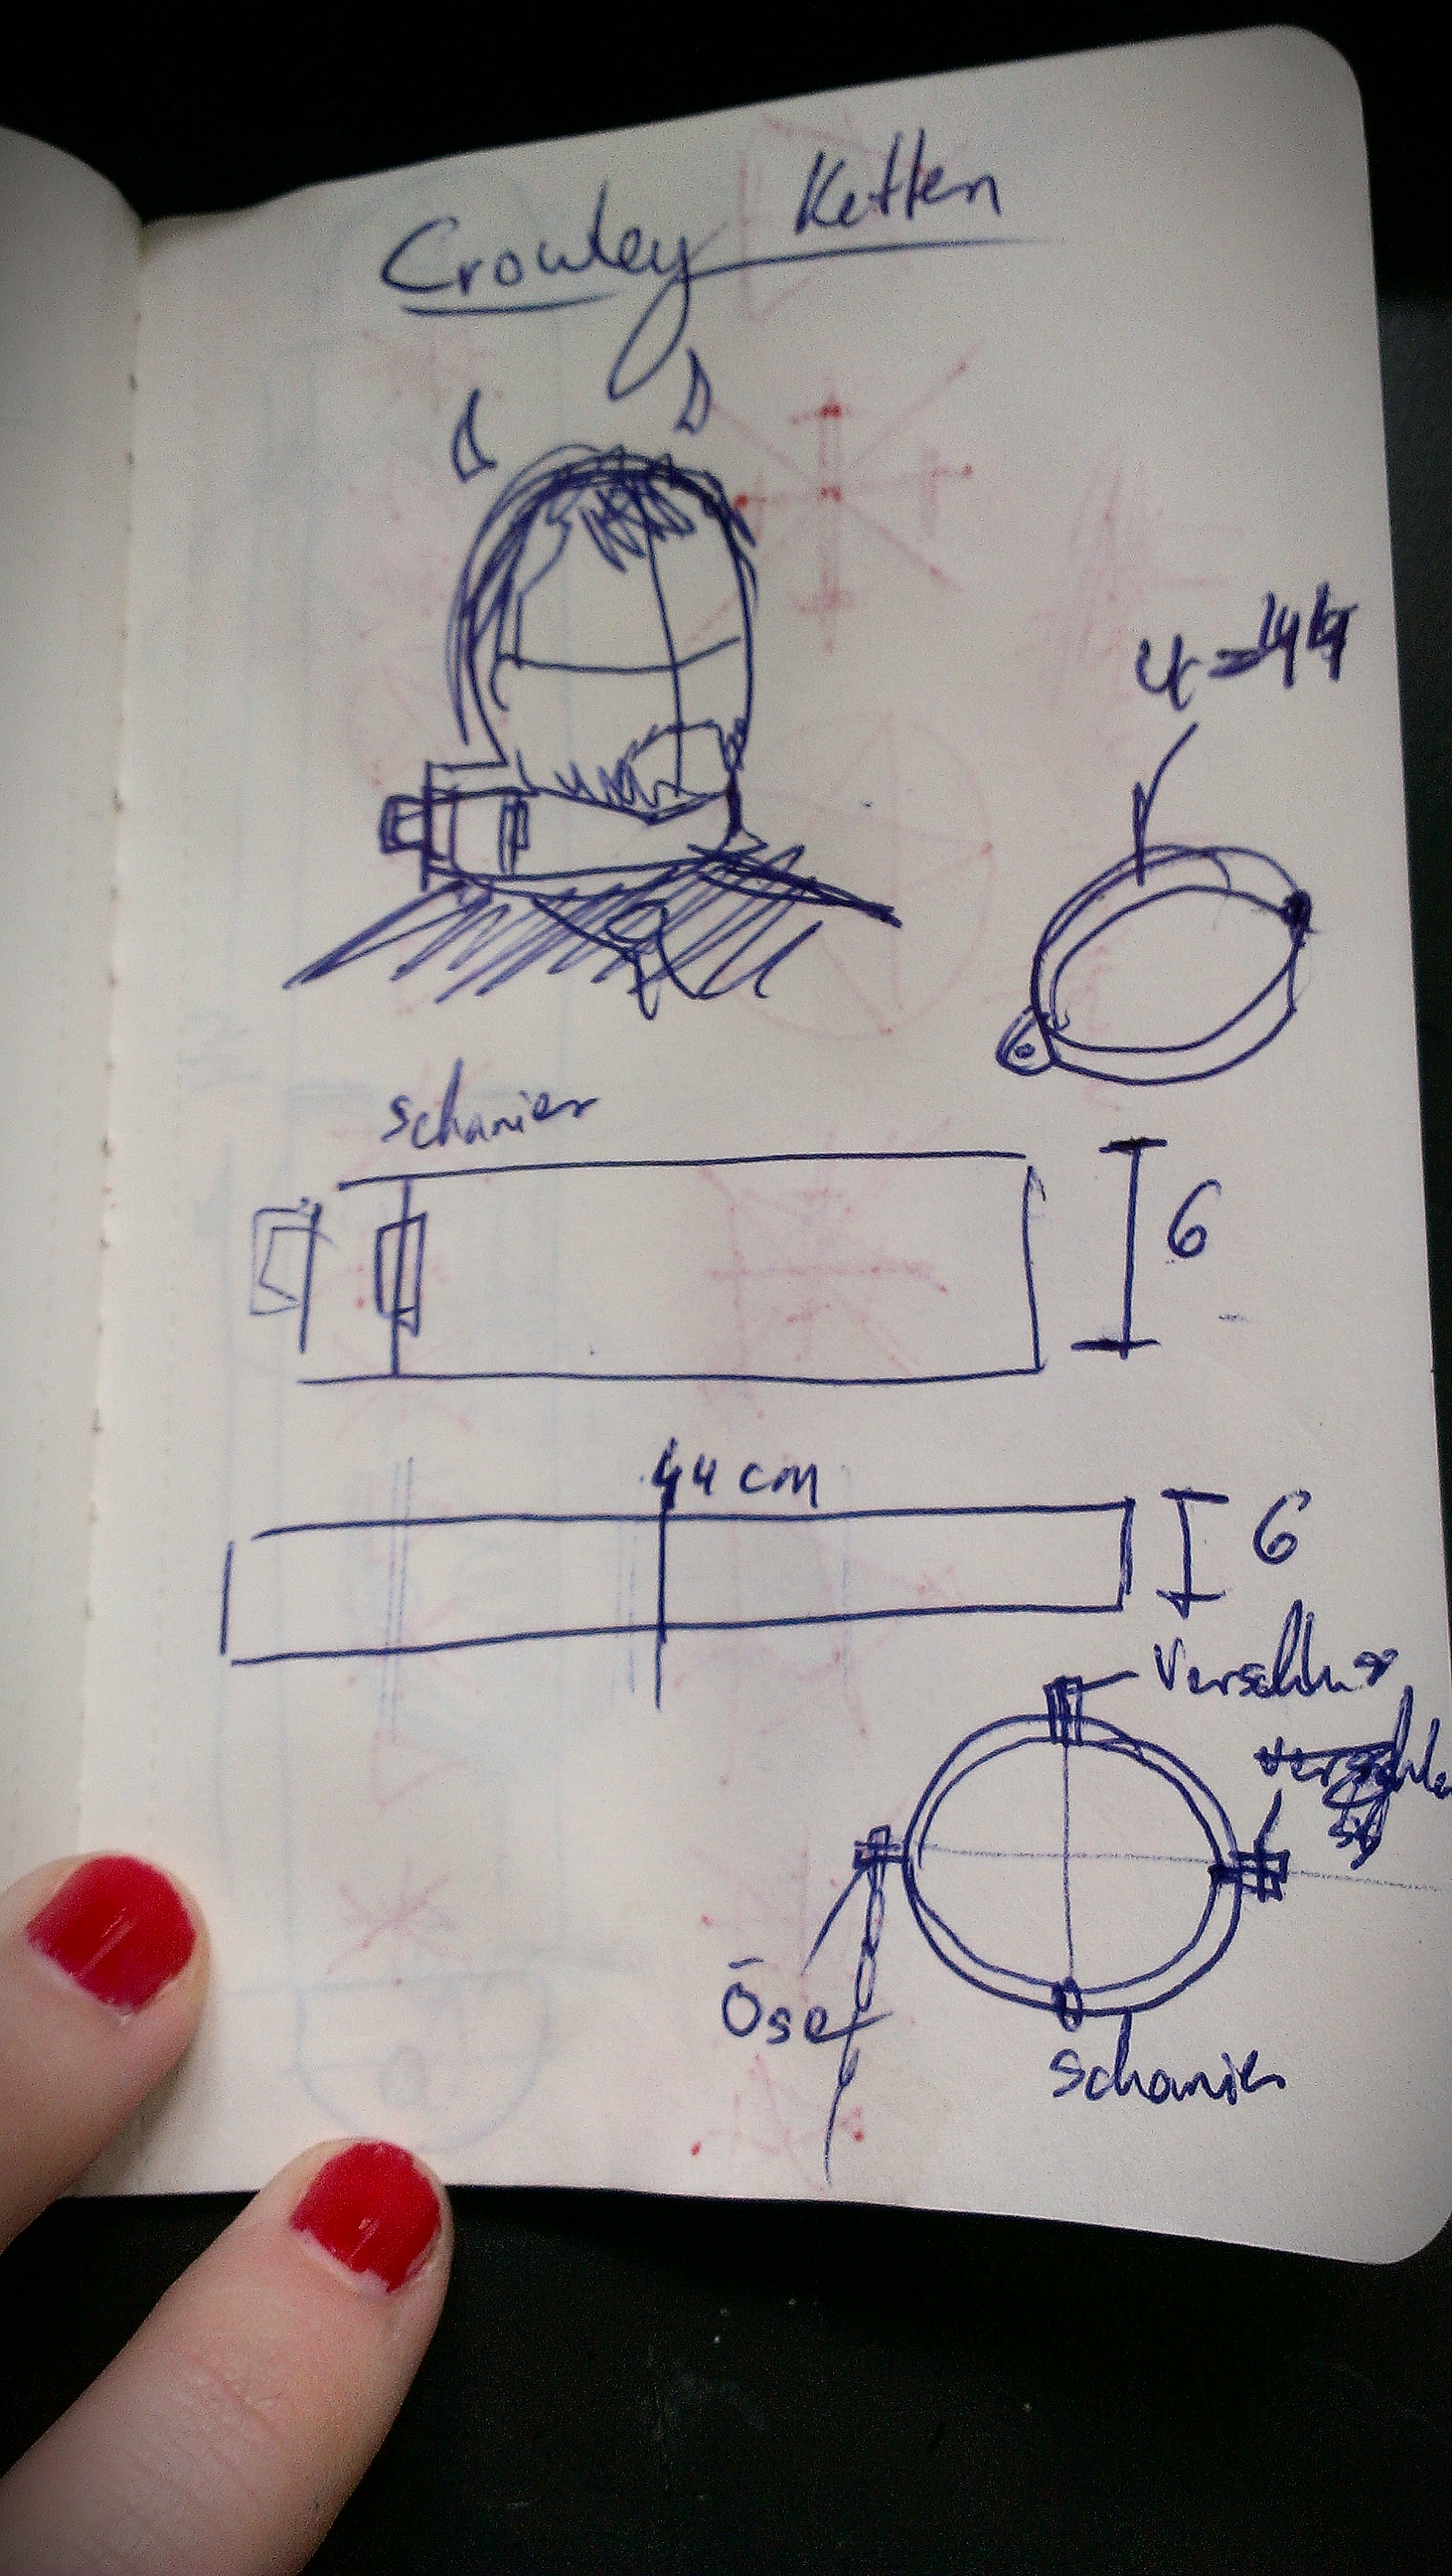 Crowley Ketten
u=44
Schanier
6
44 cm
6
Verschluss
Öse
Schanier